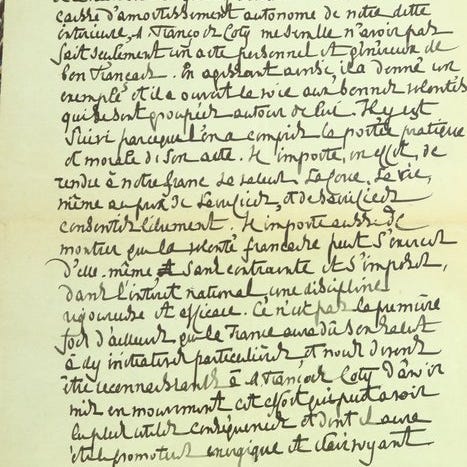 caisse d'amortissement autonome de notre dette
intérieure, M. François Coty me semble n'avoir pas
fait seulement un acte personnel et généreux de
bon Français. En agissant ainsi, il a donné un
exemple et il a ouvert la voie aux bonnes volontés
qui se sont groupées autour de lui. Il y est
suivi parce que l'on a compris la portée pratique
et morale de son acte. Il importe, en effet, de
rendre à notre franc sa valeur, sa force, sa vie,
même au prix de sacrifices, et de sacrifices
consentis librement. Il importe aussi de
montrer que la volonté française peut s'exercer
d'elle-même sans contrainte et s'imposer,
dans l'intérêt national une discipline
rigoureuse et efficace. Ce n'est pas la première
fois d'ailleurs que la France aura dû son salut
à des initiatives particulières, et nous devons
être reconnaissants à M. François Coty d'avoir
mis en mouvement cet effort qui peut avoir
les plus utiles conséquences et dont il aura
été le promoteur énergique et clairvoyant